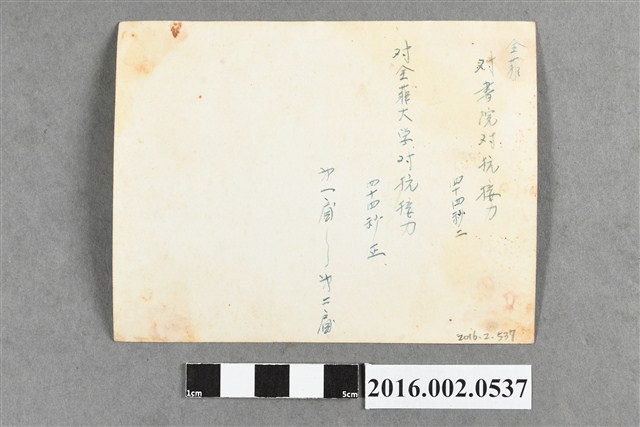 全菲
对書院对抗接力
四十四秒二
对全菲大学对抗接力
四十四秒正
第一届～第二届
2016-2-537
1cm
5cm
2016.002.0537